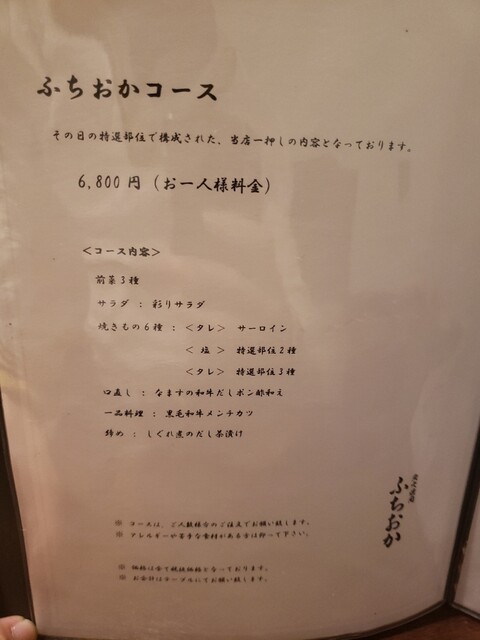 ふちおかコース
その日の特選部位で構成された、当店一押しの内容となっております。
6,800円（お一人様料金）
＜コース内容＞
前菜3種
サラダ ： 彩りサラダ
焼きもの6種 ： ＜タレ＞ サーロイン
＜ 塩 ＞ 特選部位2種
＜タレ＞ 特選部位3種
口直し ： なますの和牛だしポン酢和え
一品料理 ： 黒毛和牛メンチカツ
締め ： しぐれ煮のだし茶漬け
ふちおか
※ コースは、ご人数様分のご注文でお願い致します。
※ アレルギーや苦手な食材がある方は仰って下さい。
※ 価格は全て税抜価格となっております。
※ お会計はテーブルにてお願い致します。